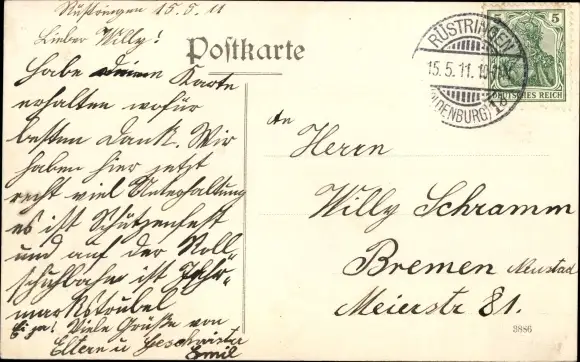 Rüstringen 15.5.11
Lieber Willy!
Habe deinen Karte
erhalten wofür
besten Dank. Wir
haben hier jetzt
recht viel Unterhaltung
es ist Schützenfest
und auf der Roll
schuhbahn ist Jahr-
marktstrubel
Viele Grüße von
Eltern u Geschwister
Emil
Postkarte
RÜSTRINGEN
15.5.11.
OLDENBURG
5
DEUTSCHES REICH
An
Herrn
Willy Schramm
Bremen Neustadt
Meierstr 81.
3886